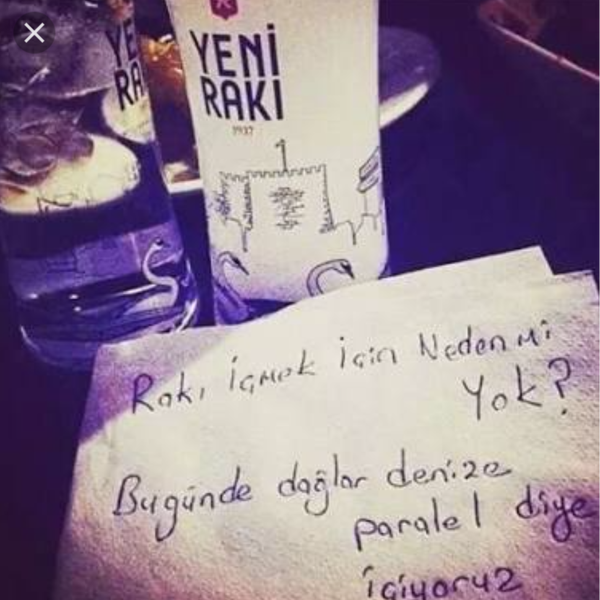 YE
RA
YENİ
RAKI
1937
Rakı içmek için Neden mi
Yok?
Bugünde dağlar denize
paralel diye
içiyoruz